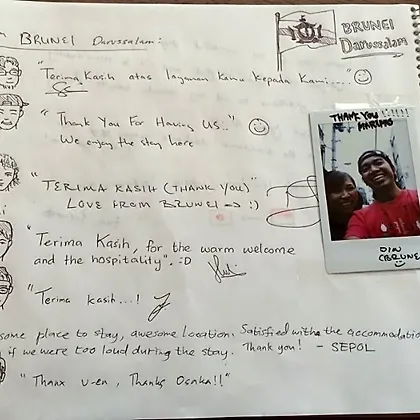 BRUNEI Darussalam:
BRUNEI
Darussalam
"Terima Kasih atas layanan kamu kepada Kami....."
"Thank You For Having US.."
We enjoy the stay here
"TERIMA KASIH (THANK YOU)"
LOVE FROM BRUNEI → :)
"Terima Kasih, for the warm welcome
and the hospitality". :D
"Terima kasih...!
some place to stay, awesome location. Satisfied with the accommodatio
if we were too loud during the stay. Thank you! - SEPOL
"Thanx u-en, Thanks Osaka!!"
THANK YOU !!!!!!
DIN
(BRUNE